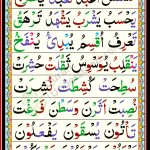 يَحْسَبُ يَشْرَبُ يَشْهَدُ تَزْهَقَ
تَعْرِفُ أُقْسِمُ يُبْدِئُ يَنْفَخُ
يَنْقَلِبُ يُوَسْوِسُ ثَقُلَتْ حُشِرَتْ
سُطِحَتْ كُشِطَتْ نُشِرَتْ
نُصِبَتْ أَثَرْنَ وَسَطْنَ فَرَغْتَ
تَأْتُونَ يَسْقُونَ يَفْعَلُونَ